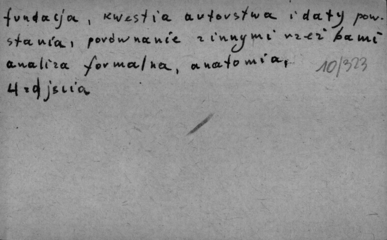 fundacja, kwestia autorstwa i daty pow-
stania, porównanie z innymi rzeźbami
analiza formalna, anatomia,
10/323
4 zdjęcia